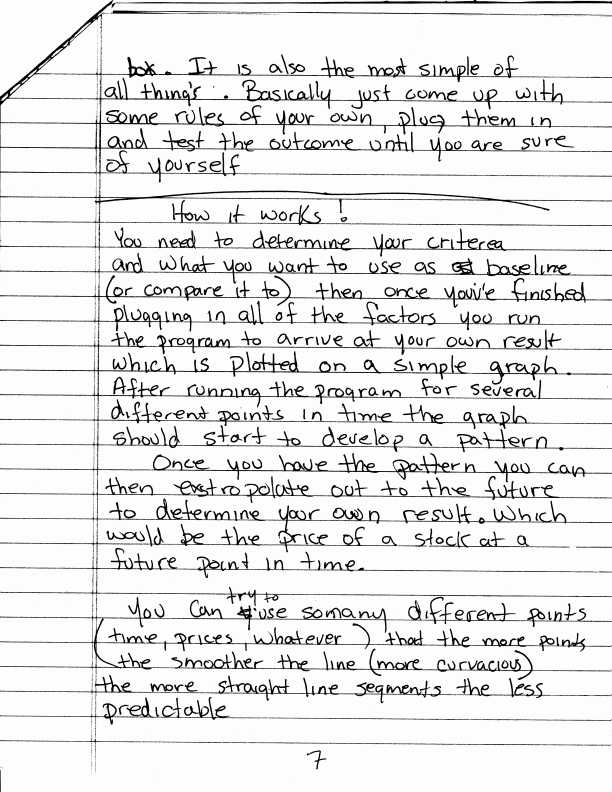 box. It is also the most simple of
all thing's. Basically just come up with
some rules of your own, plug them in
and test the outcome until yoo are sure
of yourself
How it works!
You need to determine your criterea
and what you want to use as baseline
(or compare it to) then once you've finished
plugging in all of the factors you run
the program to arrive at your own result
which is plotted on a simple graph.
After running the program for several
different points in time the graph
should start to develop a pattern.
Once you have the pattern you can
then extropolate out to the future
to determine your own result. Which
would be the price of a stock at a
future point in time.
try to
You can use somany different points
(time, prices, whatever) that the more points
the smoother the line (more curvacious)
the more straight line segments the less
predictable
7